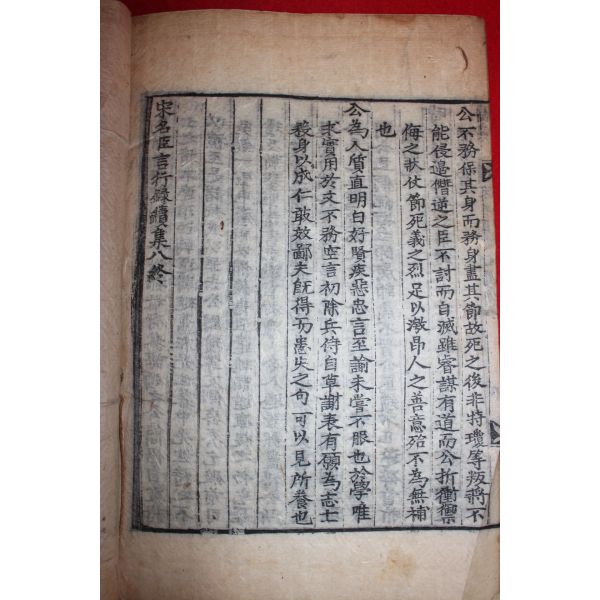 公不務保其身而務身盡其節故死之後非特瓊等叛將不
能侵邉僭逆之臣不討而自滅雖睿謀有道而公折衝禦
侮之狀仗節死義之烈足以激昂人之善意殆不為無補
也
公為人質直明白好賢疾悪忠言至論未嘗不服也於學唯
求實用於文不務空言初除兵侍自草謝表有願為志士
殺身以成仁敢效鄙夫旣得而患失之句可以見所養也
宋名臣言行録續集八終